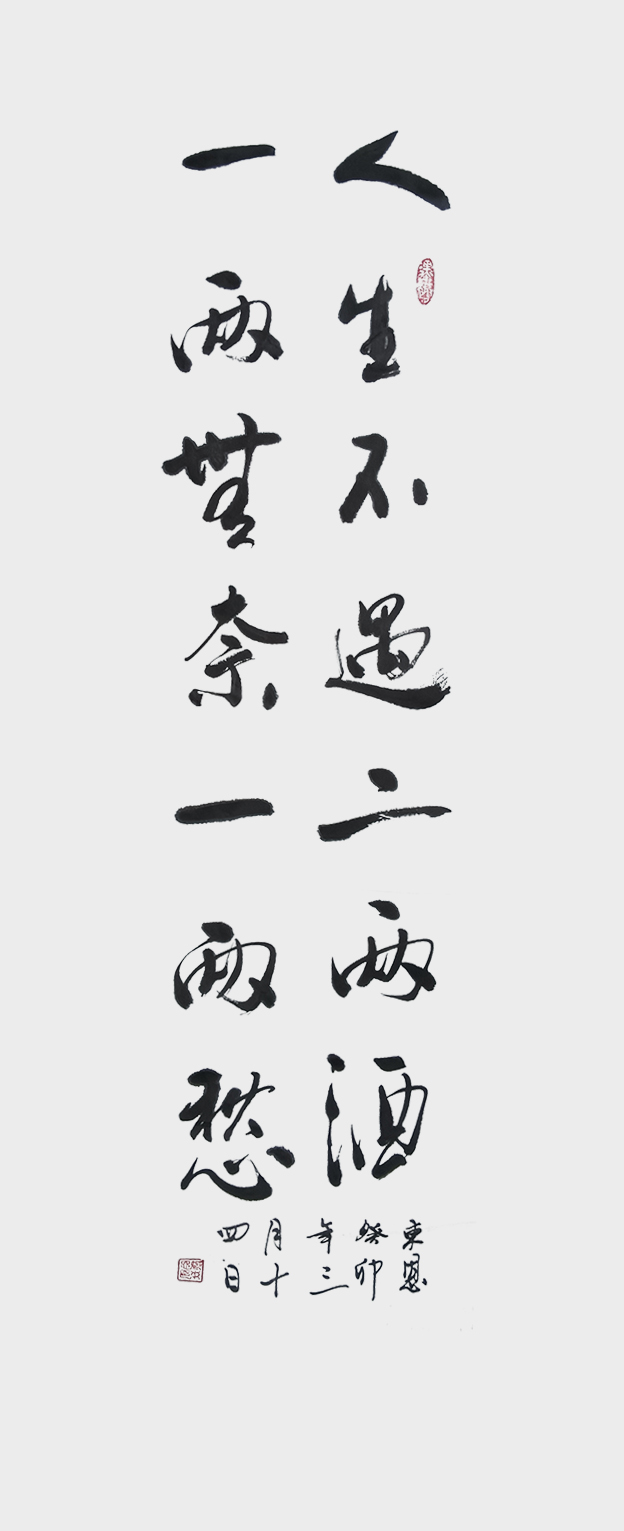 人生不遇二两酒
一两無奈一两愁
東恩
癸卯
年三
月十
四日